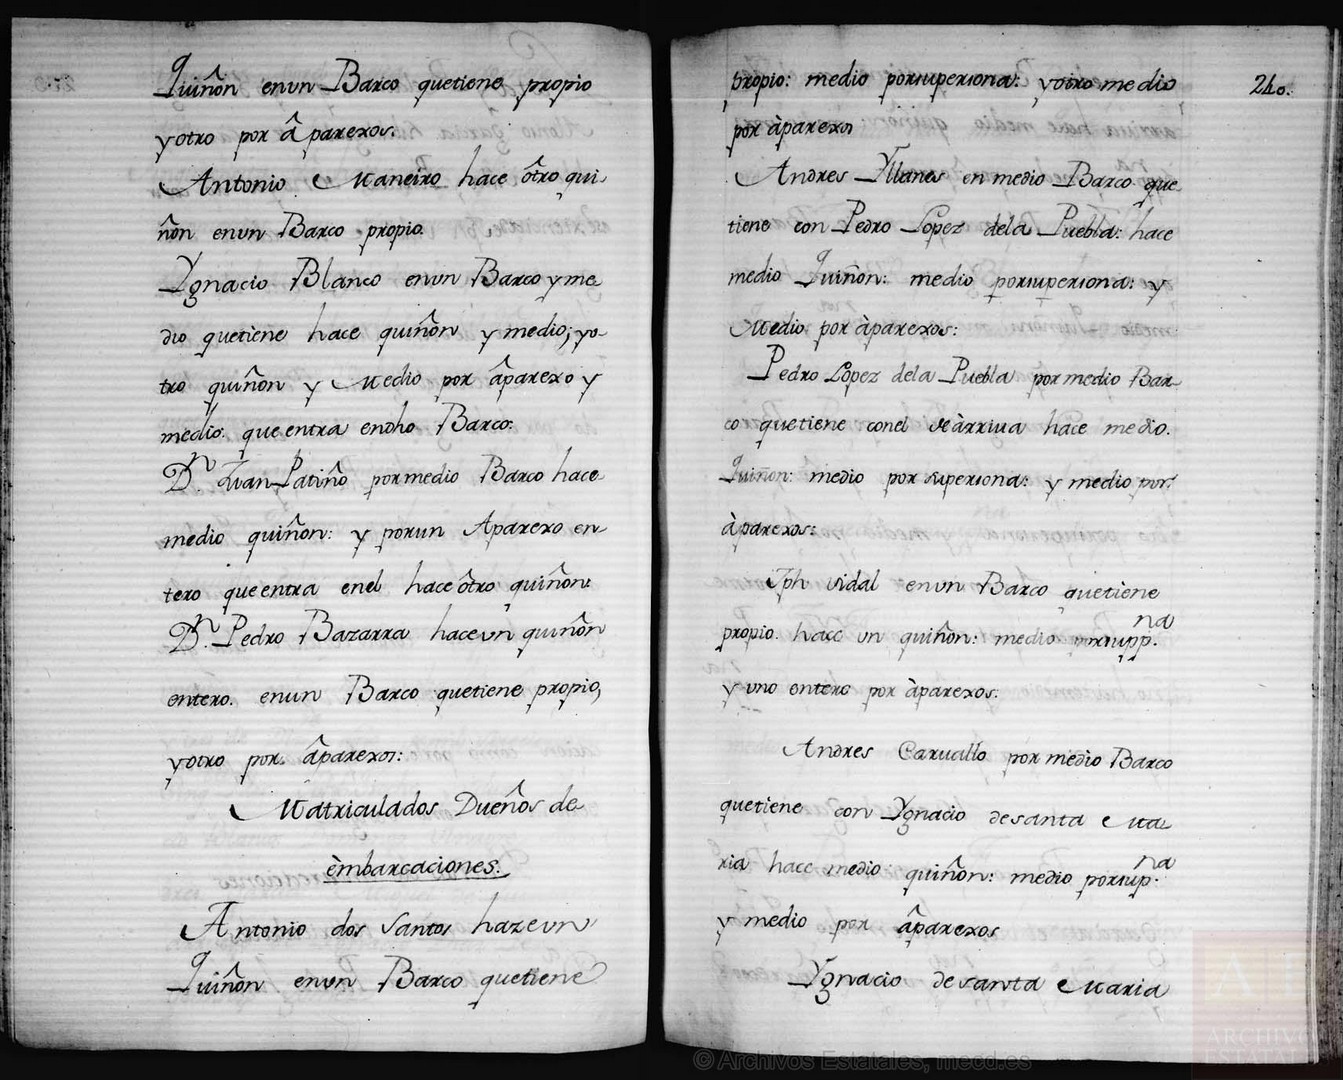 Quiñon enun Barco quetiene propio
y otro por âparexos.
Antonio Maneiro hace ôtro qui-
ñon enun Barco propio.
Ygnacio Blanco enun Barco y me-
dio quetiene hace quiñon y medio; yo-
tro quiñon y Medio por âparexo y
medio: que entra endho Barco:
Dn. Juan Patiño por medio Barco hace
medio quiñon: y por un Aparexo en-
tero que entra enel hace ôtro quiñon:
Dn. Pedro Bazarra hace un quiñon
entero. enun Barco quetiene propio,
y otro por âparexos:
Matriculados Dueños de
èmbarcaciones.
Antonio dos Santos haze un
Quiñon enun Barco quetiene
propio: medio porsupersona: y otro medio
por àparexos
240.
Andres Yllanes en medio Barco que
tiene con Pedro Lopez dela Puebla: hace
medio Quiñon: medio porsupersona: y
Medio por àparexos:
Pedro Lopez dela Puebla por medio Bar-
co quetiene conel de àrriva hace medio.
Quiñon: medio por supersona: y medio por.
àparexos:
Jph vidal enun Barco quetiene
propio. hace un quiñon: medio porsupp.na
y uno entero por àparexos.
Andres Caruallo por medio Barco
quetiene con Ygnacio desanta Ma-
ria hace medio quiñon: medio porsup.na
y medio por âparexos
Ygnacio desanta Maria
© Archivos Estatales, mecd.es
AE
ARCHIVOS
ESTATALES